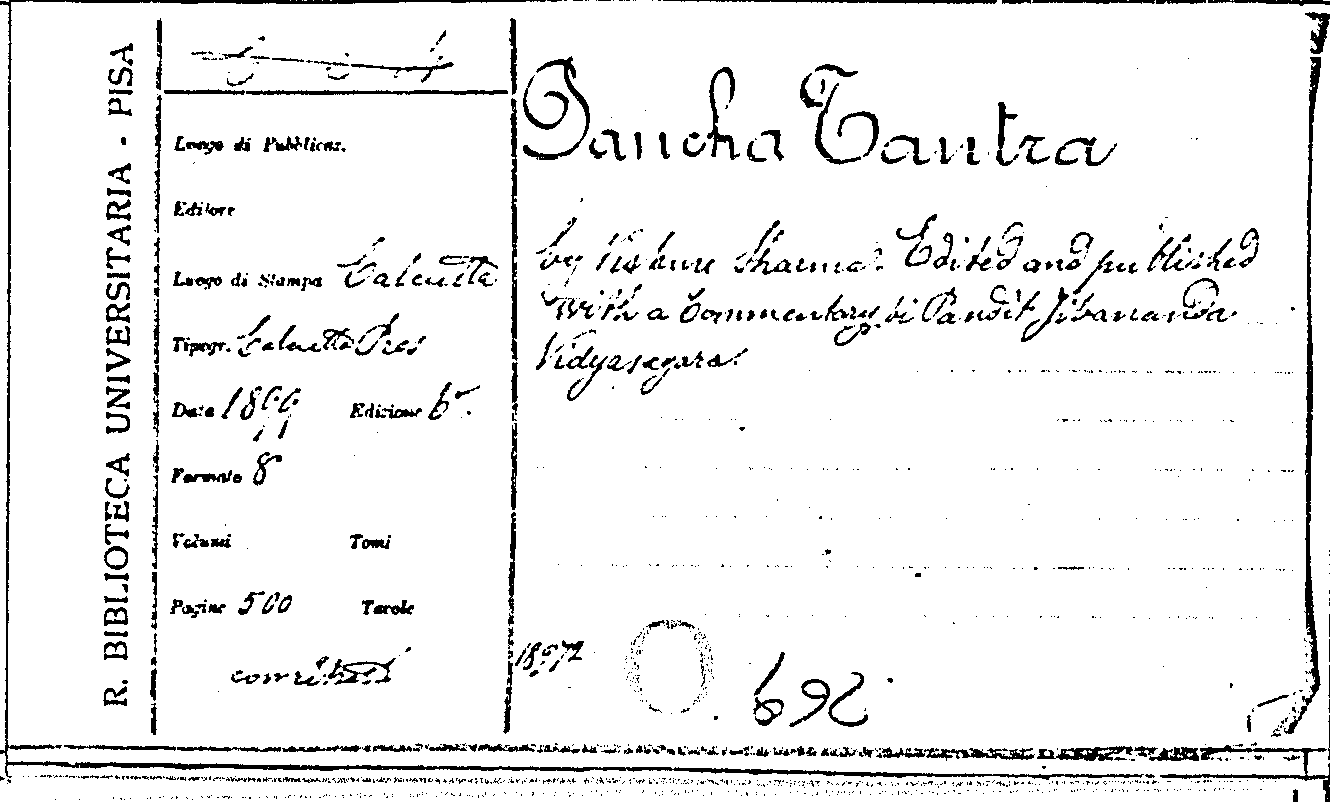 R. BIBLIOTECA UNIVERSITARIA - PISA
Luogo di Pubblicaz.
Editore
Luogo di Stampa Calcutta
Tipogr. Calcutta Pres
Data 1899 Edizione 6ª.
Formato 8
Volumi Tomi
Pagine 500 Tavole
Pancha Tantra
by Vishnu Sharma. Edited and published
with a Commentary bi Pandit Jibananda
Vidyasagara.
692